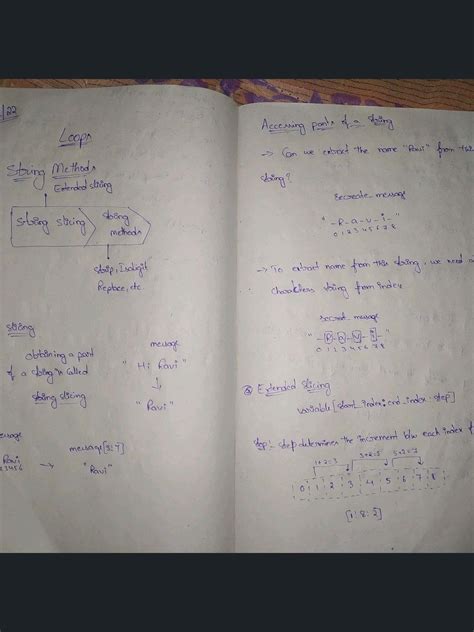 /22
Loops
String Methods
Extended string
String slicing
String methods
Strip, Isdigit
Replace, etc.
slicing
obtaining a part
of a string is called
string slicing
message
" Hi Ravi"
"Ravi"
message[3:7]
Ravi
23456
→ "Ravi"
Accessing parts of a string
→ Can we extract the name "Ravi" from this
string?
" - R - a - v - i - "
0 1 2 3 4 5 6 7 8
→ To extract name from this string, we need
characters string from index
secret message
" - R - a - v - i - "
0 1 2 3 4 5 6 7 8
Extended slicing
variable [start_index: end_index: step]
Step:- Step determines the increment b/w each index
1+2=3 3+2=5 5+2=7
0 1 2 3 4 5 6 7 8
[1:8:2]